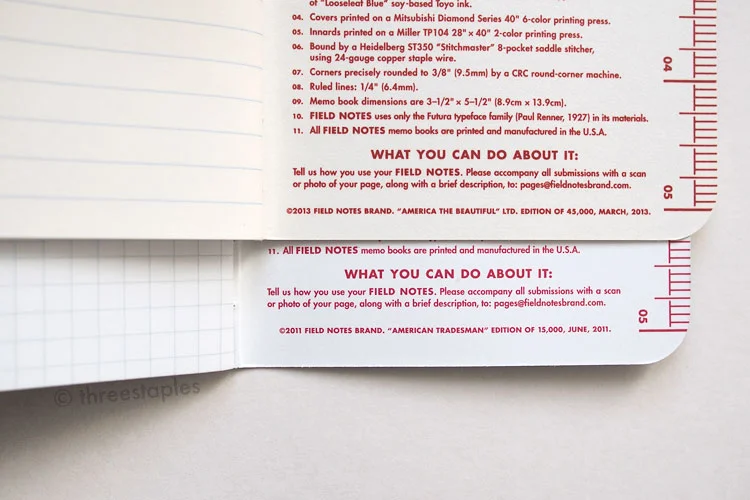 of "Looseleaf Blue" soy-based Toyo ink.
04. Covers printed on a Mitsubishi Diamond Series 40" 6-color printing press.
05. Innards printed on a Miller TP104 28" × 40" 2-color printing press.
06. Bound by a Heidelberg ST350 "Stitchmaster" 8-pocket saddle stitcher,
using 24-gauge copper staple wire.
07. Corners precisely rounded to 3/8" (9.5mm) by a CRC round-corner machine.
08. Ruled lines: 1/4" (6.4mm).
09. Memo book dimensions are 3–1/2" × 5–1/2" (8.9cm × 13.9cm).
10. FIELD NOTES uses only the Futura typeface family (Paul Renner, 1927) in its materials.
11. All FIELD NOTES memo books are printed and manufactured in the U.S.A.
WHAT YOU CAN DO ABOUT IT:
Tell us how you use your FIELD NOTES. Please accompany all submissions with a scan
or photo of your page, along with a brief description, to: pages@fieldnotesbrand.com.
©2013 FIELD NOTES BRAND. "AMERICA THE BEAUTIFUL" LTD. EDITION OF 45,000, MARCH, 2013.
04
05
11. All FIELD NOTES memo books are printed and manufactured in the U.S.A.
WHAT YOU CAN DO ABOUT IT:
Tell us how you use your FIELD NOTES. Please accompany all submissions with a scan
or photo of your page, along with a brief description, to: pages@fieldnotesbrand.com.
©2011 FIELD NOTES BRAND. "AMERICAN TRADESMAN" EDITION OF 15,000, JUNE, 2011.
05
© threestaples